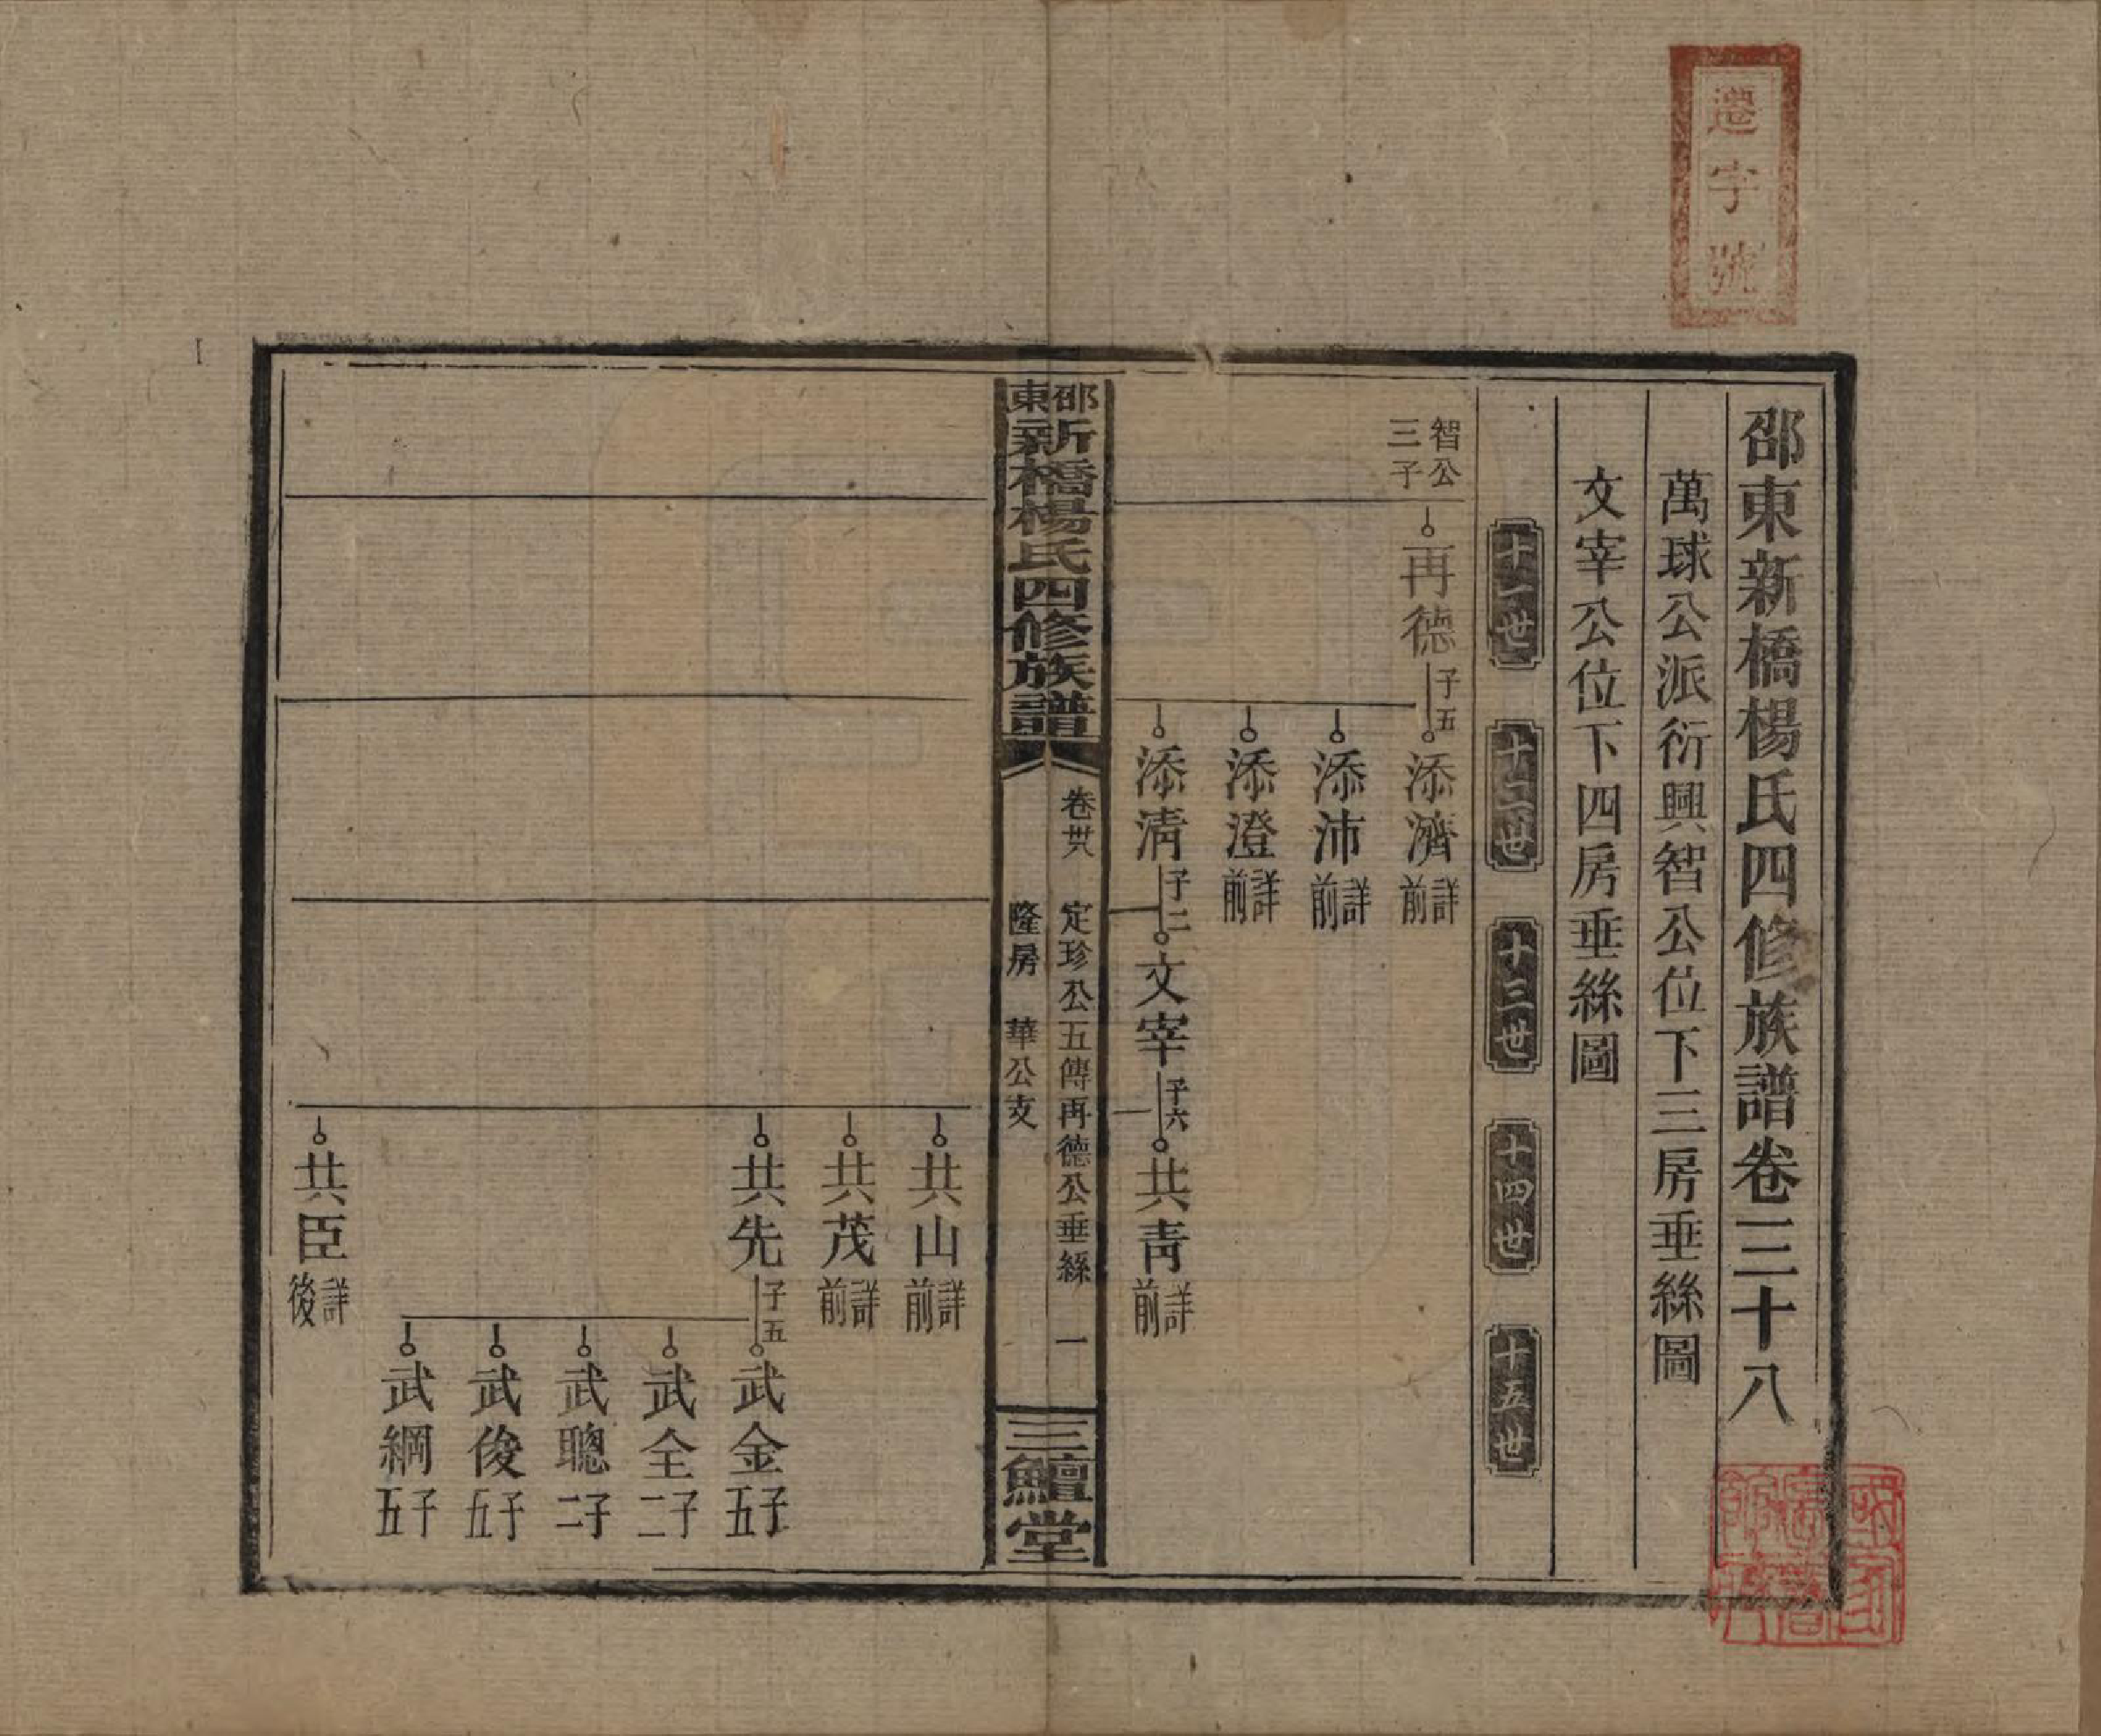 遷字號
邵東新橋楊氏四修族譜卷三十八
萬球公派衍興智公位下三房垂絲圖
文宰公位下四房垂絲圖
十一世
十二世
十三世
十四世
十五世
智公三子
再德
子五
添濟
詳前
添沛
詳前
添澄
詳前
添清
子二
文宰
子六
共青
詳前
邵東新橋楊氏四修族譜
卷卅八
定珍公五傳再德公垂絲
一
隆房 華公支
三鱣堂
共山
詳前
共茂
詳前
共先
子五
武金
子五
武全
子二
武聰
子二
武俊
子五
武綱
子五
共臣
詳後